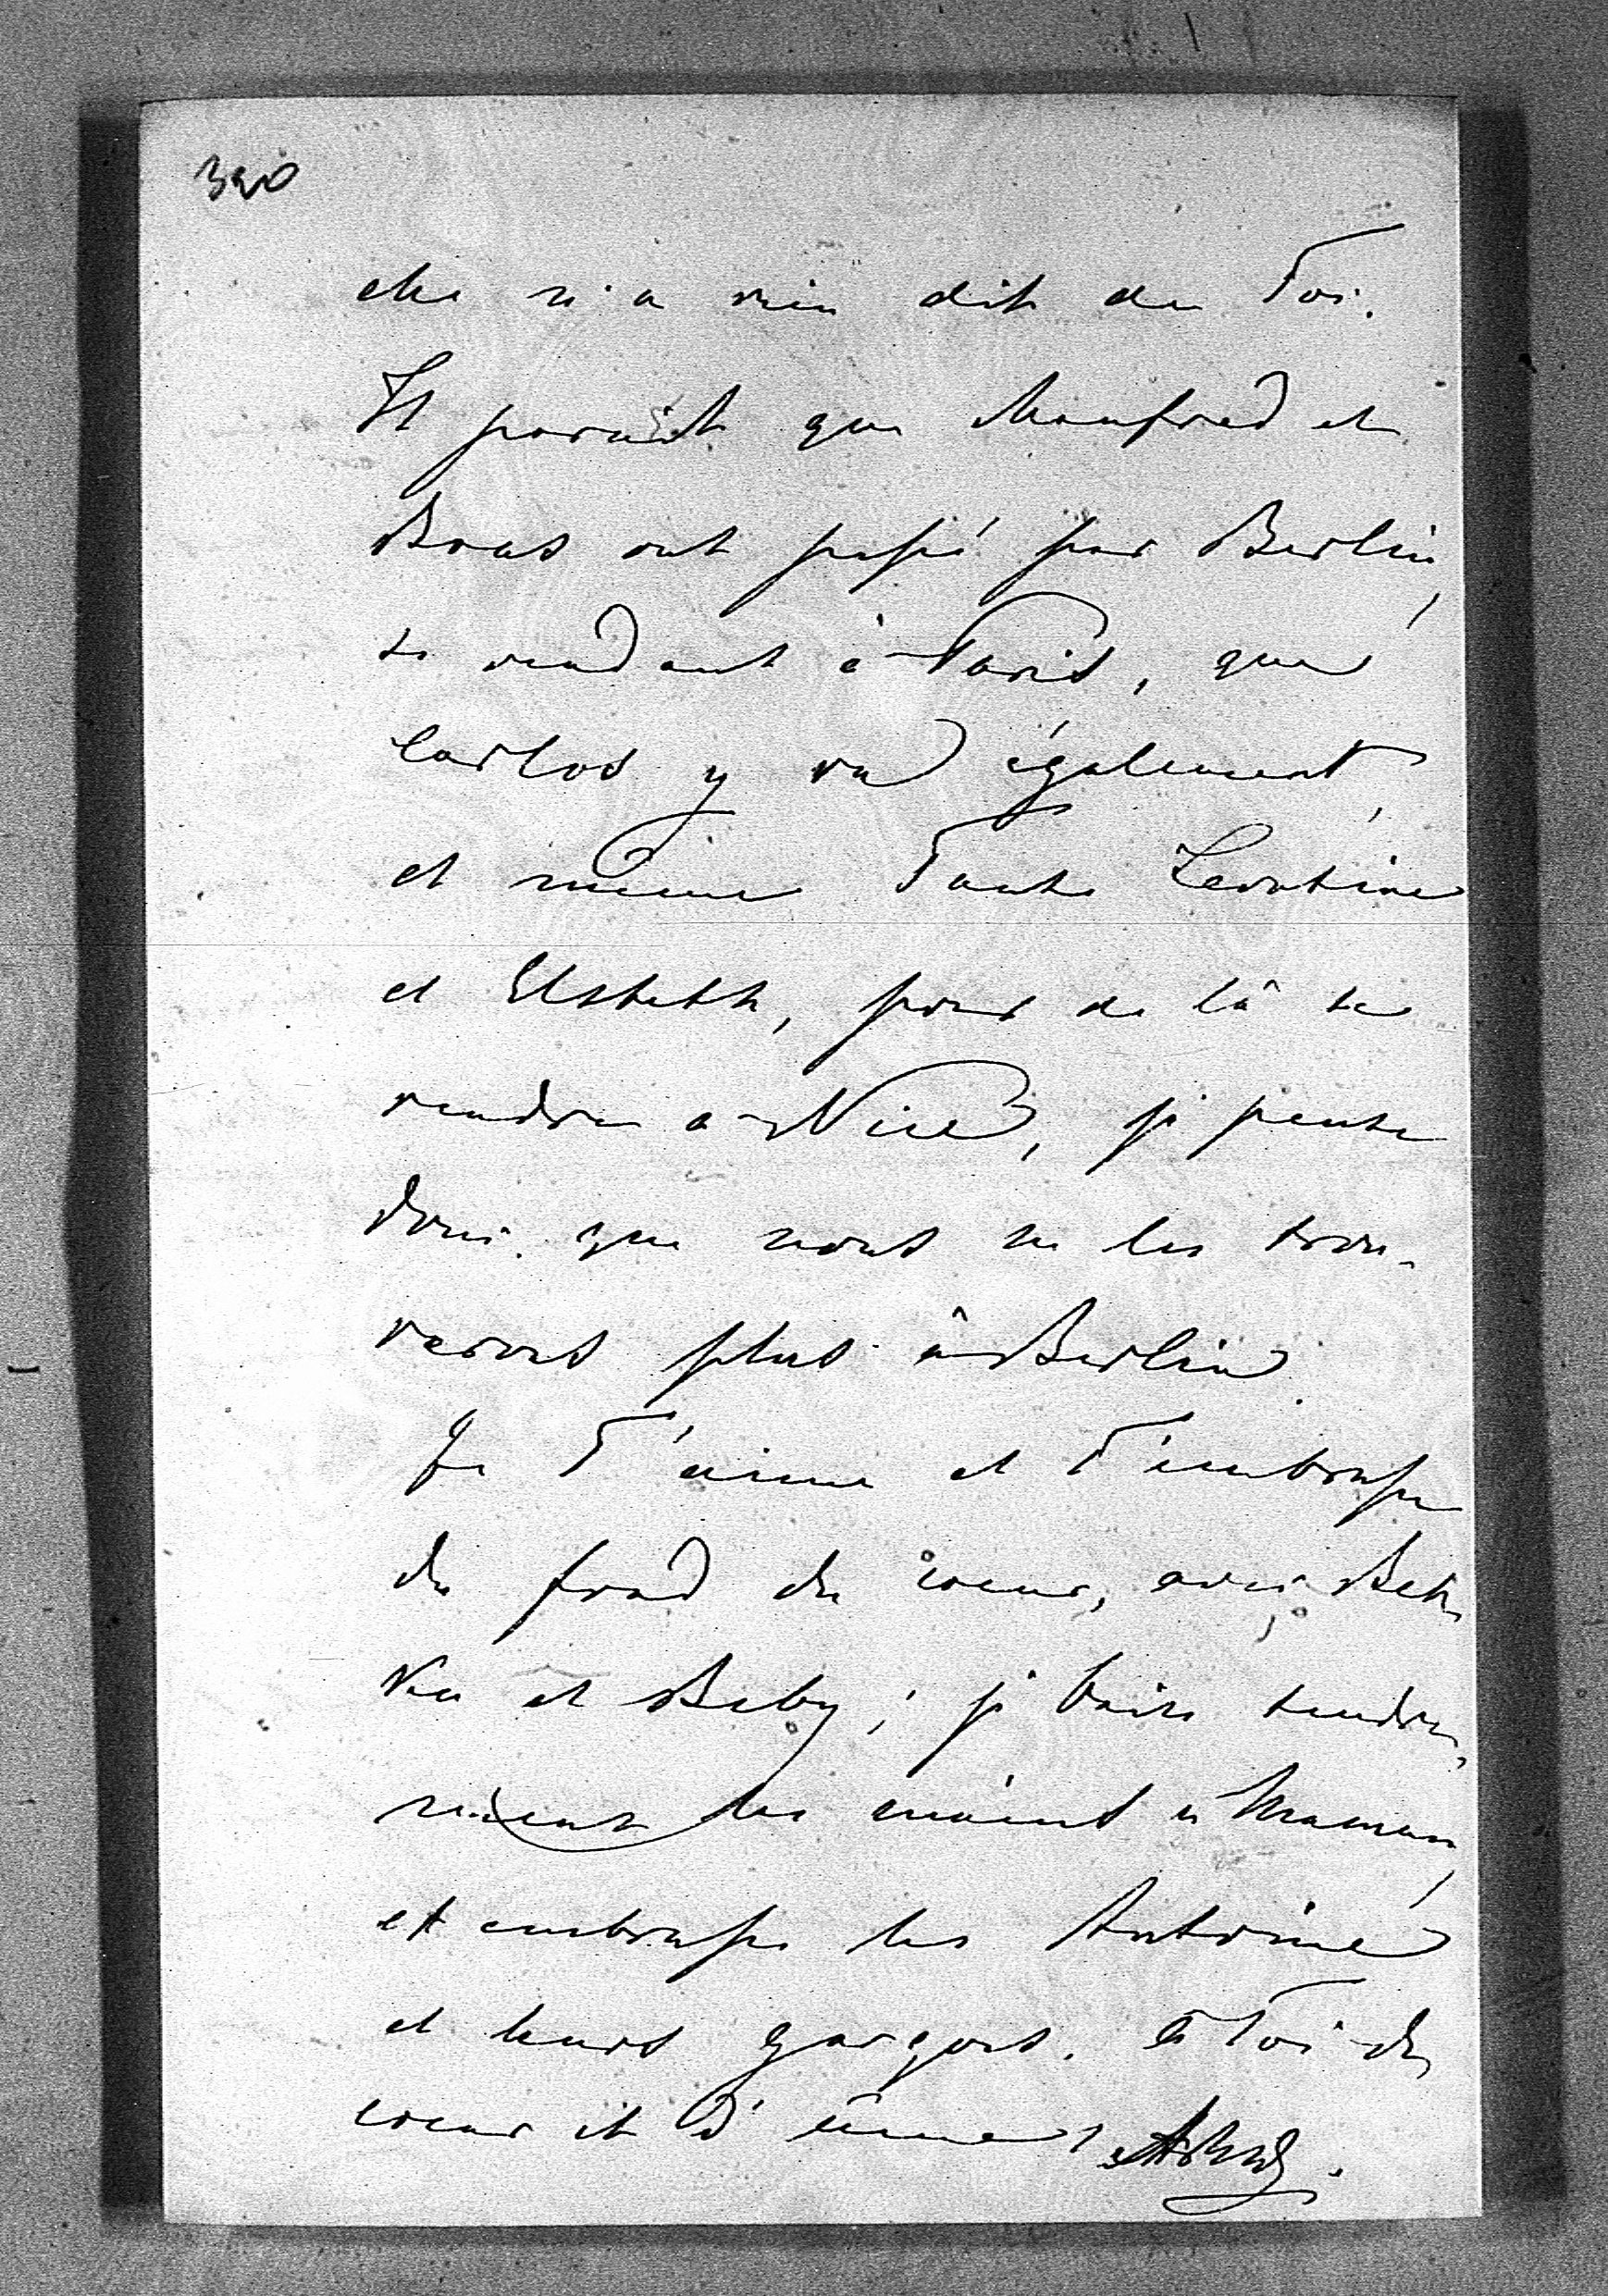 320
elle n'a rien dit de Toi.
Il parait que Manfred et
ont passé par Berlin,
se rendant à Paris, que
Carlos y va également,
et même Tante Léontine
et Elsbeth, pour de là se
rendre à Nice, je pense
donc que nous ne les trou-
verons plus à Berlin.
Je T'aime et T'embrasse
du fond du coeur, avec Bet-
ka et Baby; je baise tendre-
ment les mains à Maman,
et embrasse les Antoine
et leurs garçons. à Toi de
coeur et d'âme